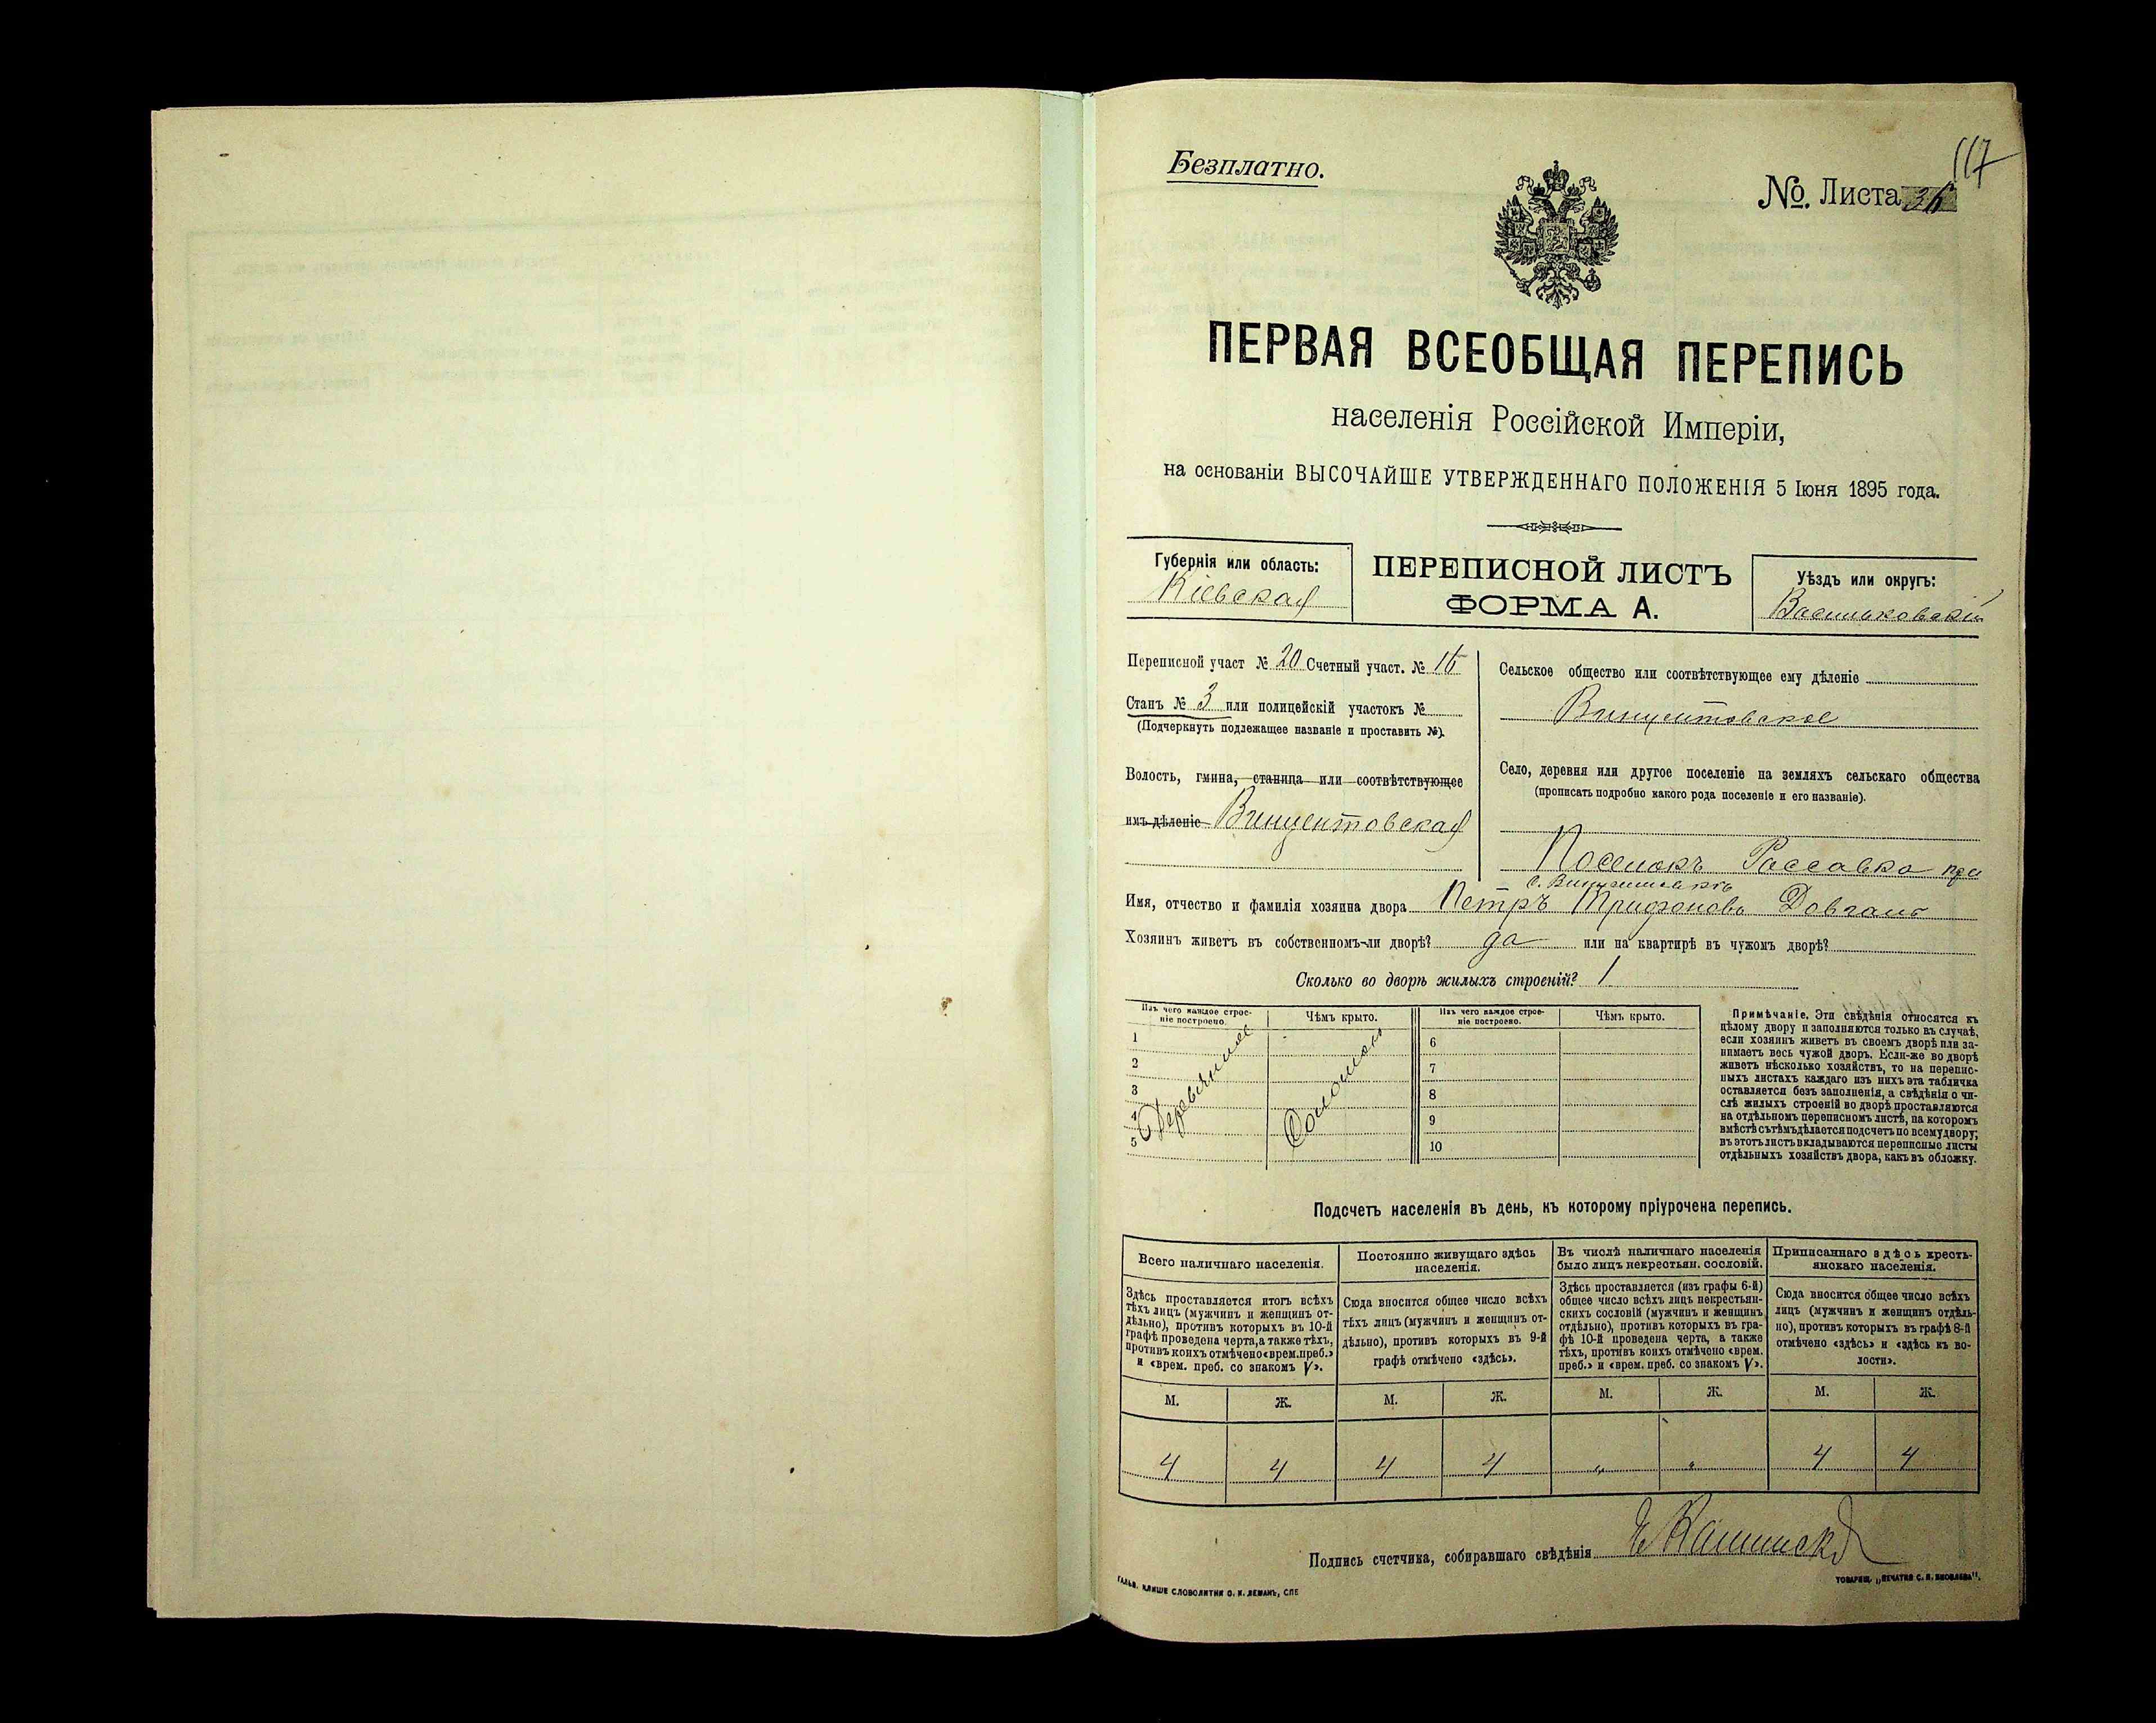 117
Безплатно.
№. Листа 36
ПЕРВАЯ ВСЕОБЩАЯ ПЕРЕПИСЬ
населенія Россійской Имперіи,
на основаніи ВЫСОЧАЙШЕ УТВЕРЖДЕННАГО ПОЛОЖЕНІЯ 5 Іюня 1895 года.
Губернія или область:
Кіевская
ПЕРЕПИСНОЙ ЛИСТЪ
ФОРМА А.
Уѣздъ или округъ:
Васильковскій
Переписной участ № 20 Счетный участ. № 16
Станъ № 3 или полицейскій участокъ №
(Подчеркнуть подлежащее названіе и проставить №).
Волость, гмина, станица или соотвѣтствующее
имъ дѣленіе Винцентовская
Сельское общество или соотвѣтствующее ему дѣленіе
Винцентовское
Село, деревня или другое поселеніе на земляхъ сельскаго общества
(прописать подробно какого рода поселеніе и его названіе).
Поселокъ Россавка при
с. Винцентовкѣ
Имя, отчество и фамилія хозяина двора Петръ Трифоновъ Довгань
Хозяинъ живетъ въ собственномъ-ли дворѣ? да или на квартирѣ въ чужомъ дворѣ?
Сколько во дворѣ жилыхъ строеній? 1
Изъ чего каждое строе-
ніе построено.
Чѣмъ крыто.
1
2
3
4
5
Деревянное
Соломою
Изъ чего каждое строе-
ніе построено.
Чѣмъ крыто.
6
7
8
9
10
Примѣчаніе. Эти свѣдѣнія относятся къ
цѣлому двору и заполняются только въ случаѣ,
если хозяинъ живетъ въ своемъ дворѣ или за-
нимаетъ весь чужой дворъ. Если-же во дворѣ
живетъ нѣсколько хозяйствъ, то на перепис-
ныхъ листахъ каждаго изъ нихъ эта табличка
оставляется безъ заполненія, а свѣдѣнія о чи-
слѣ жилыхъ строеній во дворѣ проставляются
на отдѣльномъ переписномъ листѣ, на которомъ
вмѣстѣ съ тѣмъ дѣлается подсчетъ по всему двору;
въ этотъ листъ вкладываются переписные листы
отдѣльныхъ хозяйствъ двора, какъ въ обложку.
Подсчетъ населенія въ день, къ которому пріурочена перепись.
Всего наличнаго населенія.
Здѣсь проставляется итогъ всѣхъ
тѣхъ лицъ (мужчинъ и женщинъ от-
дѣльно), противъ которыхъ въ 10-й
графѣ проведена черта, а также тѣхъ,
противъ коихъ отмѣчено «врем. преб.»
и «врем. преб. со знакомъ V».
Постоянно живущаго здѣсь
населенія.
Сюда вносится общее число всѣхъ
тѣхъ лицъ (мужчинъ и женщинъ от-
дѣльно), противъ которыхъ въ 9-й
графѣ отмѣчено «здѣсь».
Въ числѣ наличнаго населенія
было лицъ некрестьян. сословій.
Здѣсь проставляется (изъ графы 6-й)
общее число всѣхъ лицъ некрестьян-
скихъ сословій (мужчинъ и женщинъ
отдѣльно), противъ которыхъ въ гра-
фѣ 10-й проведена черта, а также
тѣхъ, противъ коихъ отмѣчено «врем.
преб.» и «врем. преб. со знакомъ V».
Приписаннаго здѣсь кресть-
янскаго населенія.
Сюда вносится общее число всѣхъ
лицъ (мужчинъ и женщинъ отдѣль-
но), противъ которыхъ въ графѣ 8-й
отмѣчено «здѣсь» и «здѣсь къ во-
лости».
М. Ж. М. Ж. М. Ж. М. Ж.
4 4 4 4 " " 4 4
Подпись счетчика, собиравшаго свѣдѣнія
ГАЛЬВ. КЛИШЕ СЛОВОЛИТНИ О. И. ЛЕМАНЪ, СПБ
ТОВАРИЩ. „ПЕЧАТНЯ С. П. ЯКОВЛЕВА".